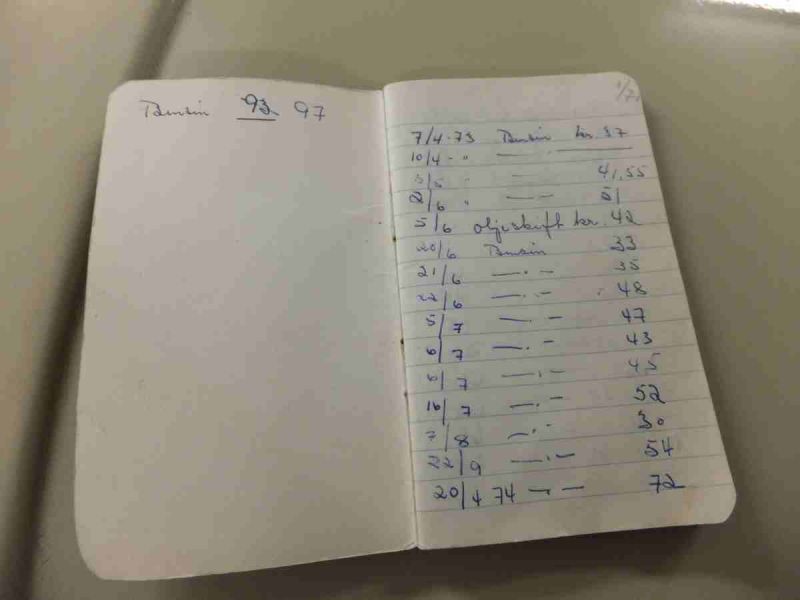 Bensin 93 97
7/4-73 Bensin kr. 37
10/4 - " —
3/5 - — 41,55
2/6 " — — 51
5/6 oljeskift kr. 42
20/6 Bensin 33
21/6 — " — 35
22/6 — " — 48
5/7 — " — 47
6/7 — " — 43
6/7 — " — 45
16/7 — " — 52
7/8 — " — 30
22/9 — " — 54
20/4 74 — " — 72